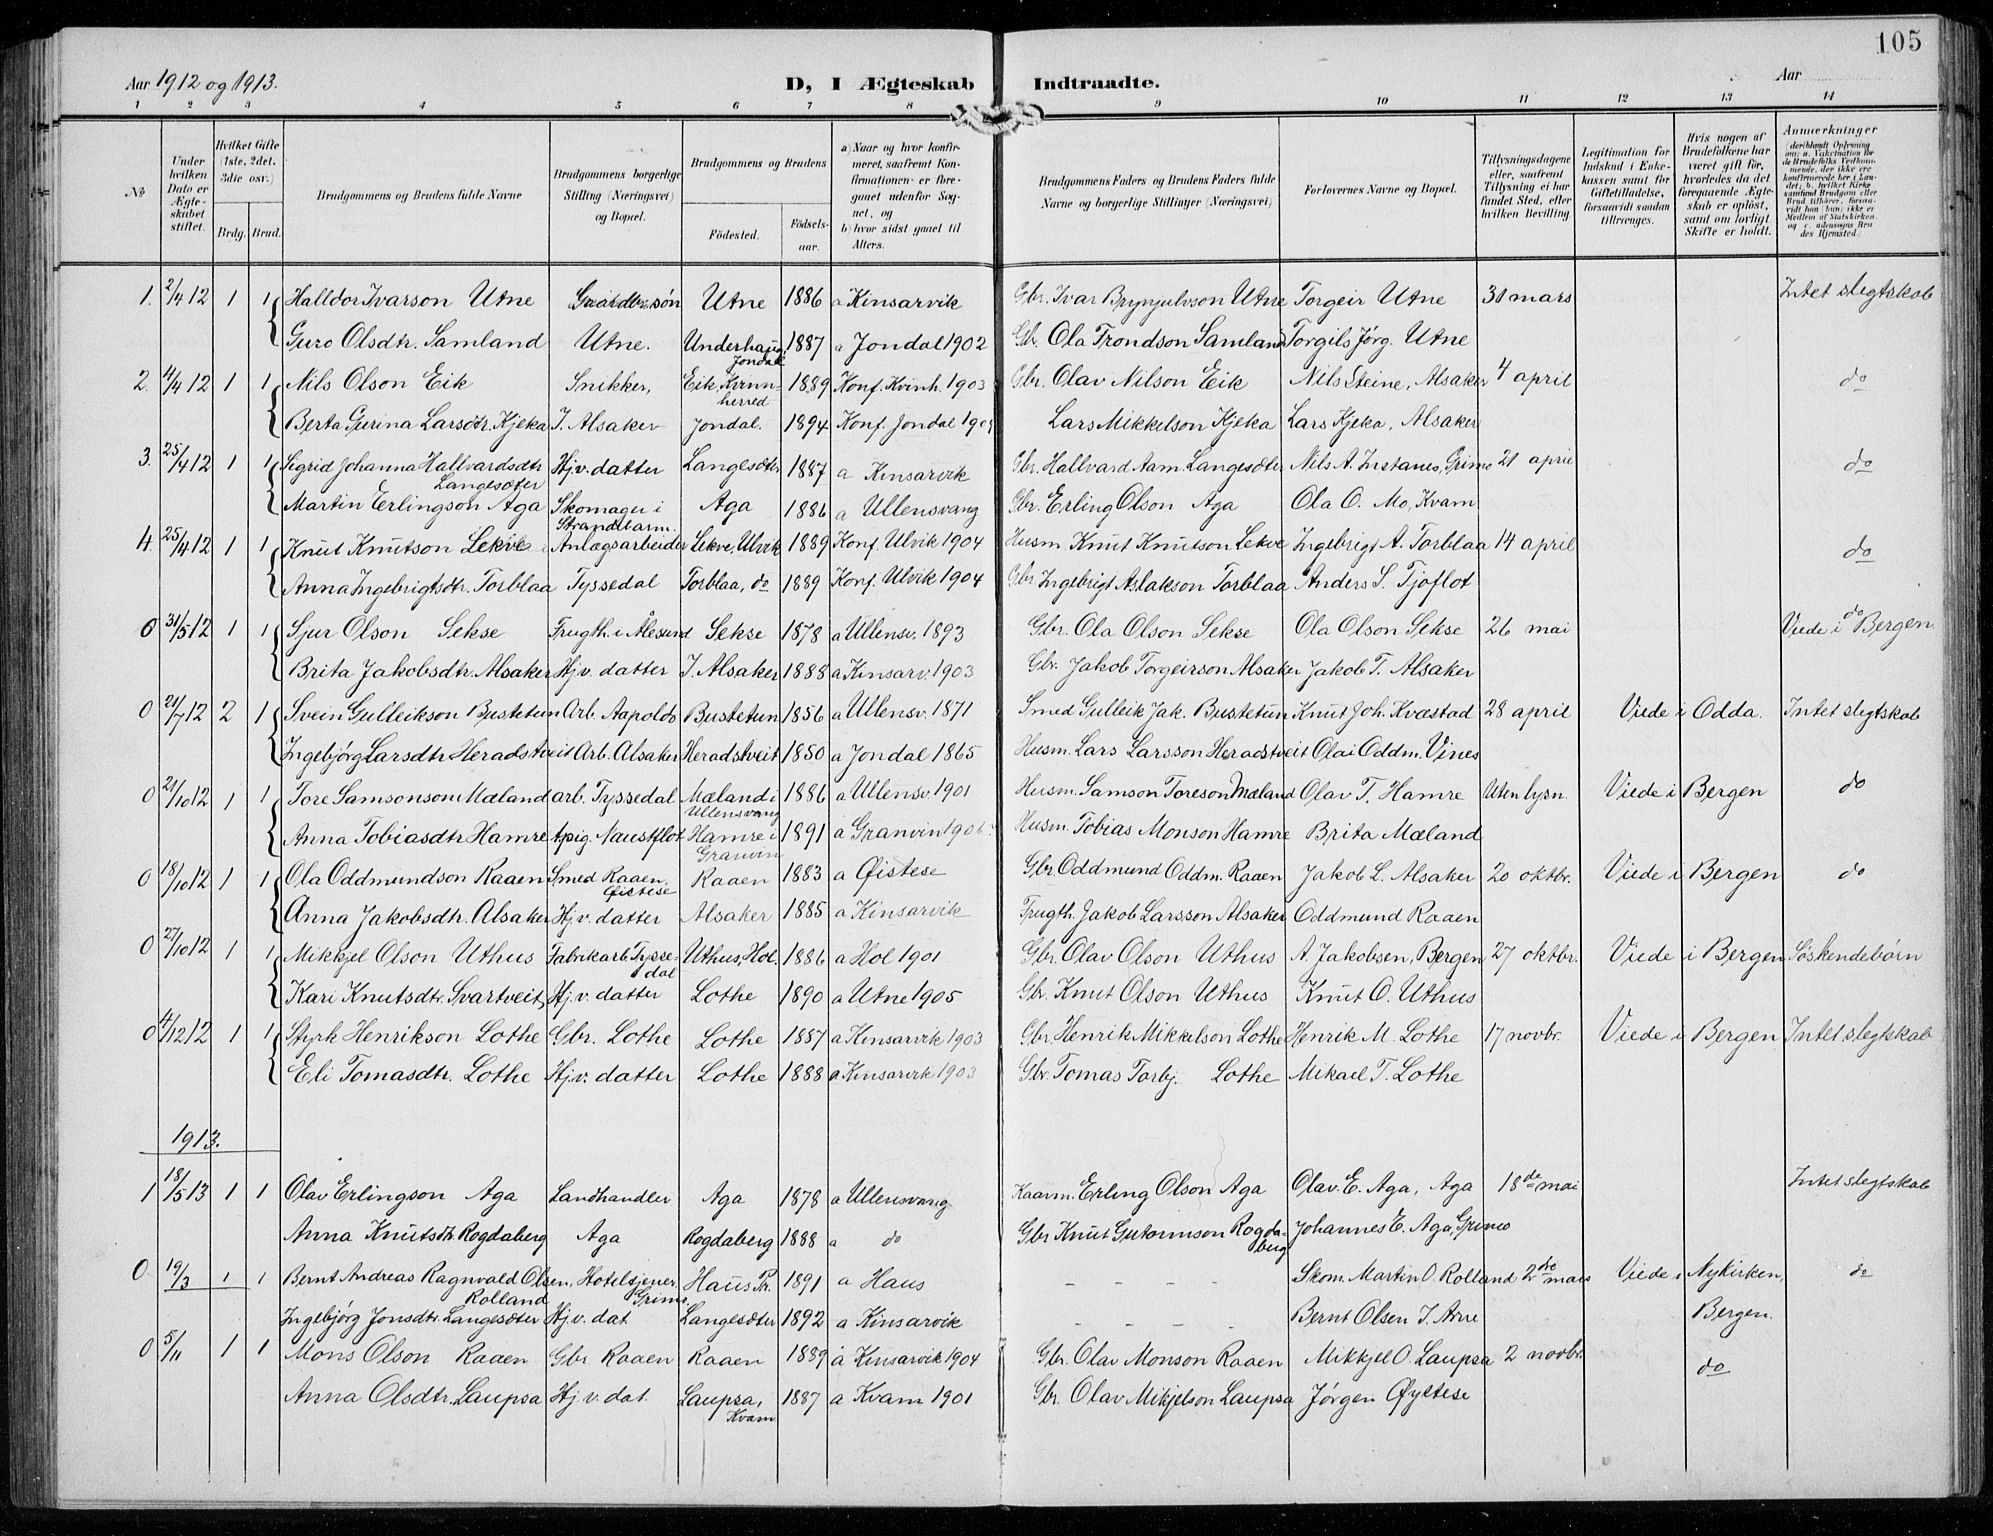 105
Aar 1912 og 1913.
D, I Ægteskab Indtraadte.
Aar
1 2 3 4 5 6 7 8 9 10 11 12 13 14
№
Under hvilken Dato er Ægteskabet stiftet.
Hvilket Gifte (1ste, 2det, 3die osv.)
Brdg. Brud.
Brudgommens og Brudens fulde Navne
Brudgommens borgerlige Stilling (Næringsvei) og Bopæl.
Brudgommens og Brudens
Födested.
Födselsaar.
a) Naar og hvor konfirmeret, saafremt Konfirmationen er foregaaet udenfor Sognet, og
b) hvor sidst gaaet til Alters.
Brudgommens Faders og Brudens Faders fulde Navne og borgerlige Stillinger (Næringsvei)
Forlovernes Navne og Bopæl.
Tillysningsdagene eller, saafremt Tillysning ei har fundet Sted, efter hvilken Bevilling.
Legitimation for Indskud i Enkekassen samt for Giftetilladelse, forsaavidt saadan tiltrænges.
Hvis nogen af Brudefolkene har været gift før, hvorledes da det foregaaende Ægteskab er opløst, samt om lovligt Skifte er holdt.
Anmerkninger (deriblandt Oplysning om: a. Vakcination for de Brudefolks Vedkommende, der ikke ere konfirmerede her i Landet; b. hvilket Kirkesamfund Brudgom eller Brud tilhører, forsaavidt han (hun) ikke er Medlem af Statskirken, og c. udensogns Brudes Hjemsted.)
1. 2/4 12 1 1 Halldor Ivarson Utne Gaardbr.søn Utne 1886 a Kinsarvik Gbr. Ivar Brynjulvson Utne Torgeir Utne 31 mars Intet slegtskab
Guro Olsdtr. Samland Utne. Underhaug, Jondal 1887 a Jondal 1902 Gbr. Ola Trondson Samland Torgils Jørg. Utne
2. 4/4 12 1 1 Nils Olson Eik Snikker, Eik, Kvinnherred 1889 Konf. Kvinh. 1903 Gbr. Olav Nilson Eik Nils Steine, Alsaker 4 april do
Berta Gurina Larsdtr. Kjeka I. Alsaker Jondal. 1894 Konf. Jondal Lars Mikkelson Kjeka Lars Kjeka, Alsaker
3. 25/4 12 1 1 Sigrid Johanna Hallvardsdtr Langesæter Hj.v. datter Langesæter 1887 a Kinsarvik Gbr. Hallvard Aam. Langesæter Nils A. Instanes, Grimo 21 april do
Martin Erlingson Aga Skomager i Strandebarm. Aga 1886 a Ullensvang Gbr. Erling Olson Aga Ola O. Mo, Kvam
4. 25/4 12 1 1 Knut Knutson Lekve Anlægsarbeider Lekve, Ulvik 1889 Konf. Ulvik 1904 Husm. Knut Knutson Lekve Ingebrigt A. Torblaa 14 april do
Anna Ingebrigtsdtr. Torblaa Tyssedal Torblaa, do 1889 Konf. Ulvik 1904 Gbr. Ingebrigt Aslakson Torblaa Anders S. Tjoflot
0 31/5 12 1 1 Sjur Olson Sekse Frugth. i Ålesund Sekse 1878 a Ullensv. 1893 Gbr. Ola Olson Sekse Ola Olson Sekse 26 mai do Viede i Bergen
Brita Jakobsdtr. Alsaker Hj.v. datter I. Alsaker 1888 a Kinsarv. 1903 Gbr. Jakob Torgeirson Alsaker Jakob T. Alsaker
0 21/7 12 2 1 Svein Gulleikson Bustetun Arb. Aapolds Bustetun 1856 a Ullensv. 1871 Smed Gulleik Jak. Bustetun Knut Joh. Kvæstad 28 april Viede i Odda. Intet slegtskab
Ingebjørg Larsdtr Heradstveit Arb. Alsaker Heradstveit 1850 a Jondal 1865 Husm. Lars Larsson Heradstveit Olai Oddm. Vines
0 21/10 12 1 1 Tore Samsonson Mæland arb. Tyssedal Mæland i Ullensvang 1886 a Ullensv. 1901 Husm. Samson Toreson Mæland Olav T. Hamre Uten lysn. Viede i Bergen do
Anna Tobiasdtr Hamre Apig. Naustflot Hamre i Granvin 1891 a Granvin 1906 Husm. Tobias Monson Hamre Brita Mæland
0 18/10 12 1 1 Ola Oddmundson Raaen Smed Raaen, Øistese Raaen 1883 a Øistese Gbr. Oddmund Oddm. Raaen Jakob L. Alsaker 20 oktbr. Viede i Bergen do
Anna Jakobsdtr. Alsaker Hj.v. datter Alsaker 1885 a Kinsarvik Frugth. Jakob Larsson Alsaker Oddmund Raaen
0 27/10 12 1 1 Mikkjel Olson Uthus Fabrikarb. Tyssedal Uthus, Hol. 1886 a Hol 1901 Gbr. Olav Olson Uthus A. Jakobsen, Bergen 27 oktbr. Viede i Bergen Søskendebørn
Kari Knutsdtr. Svartveit, Hj.v. datter Lothe 1890 a Utne 1905 Gbr. Knut Olson Uthus Knut O. Uthus
0 4/12 12 1 1 Styrk Henrikson Lothe Gbr. Lothe Lothe 1887 a Kinsarvik 1903 Gbr. Henrik Mikkelson Lothe Henrik M. Lothe 17 novbr. Viede i Bergen Intet slegtskab
Eli Tomasdtr. Lothe Hj.v. datter Lothe 1888 a Kinsarvik 1903 Gbr. Tomas Torbj. Lothe Mikael T. Lothe
1913.
1 18/5 13 1 1 Olav Erlingson Aga Landhandler Aga 1878 a Ullensvang Kaarm. Erling Olson Aga Olav. E. Aga, Aga 18de mai Intet slegtskab
Anna Knutsdtr Rogdaberg Aga Rogdaberg 1888 a do Gbr Knut Gutormson Rogdaberg Johannes E. Aga, Grimo
0 19/3 1 1 Bernt Andreas Ragnvald Olsen Rolland Hoteltjener, Grimo. Haus Pr. 1891 a Haus - - - - Skom. Martin O. Rolland 2den mars Viede i Nykirken, do
Ingebjørg Jonsdtr. Langesæter Hj.v. dat Langesæter 1892 a Kinsarvik - - - - Bernt Olsen I. Arne Bergen.
0 5/11 1 1 Mons Olson Raaen Gbr Raaen Raaen 1889 a Kinsarvik 1904 Gbr. Olav Monson Raaen Mikkjel O. Laupsa 2 novbr. do
Anna Olsdtr. Laupsa Hj v. dat. Laupsa, Kvam 1887 a Kvam 1901 Gbr. Olav Mikjelson Laupsa Jørgen Øystese